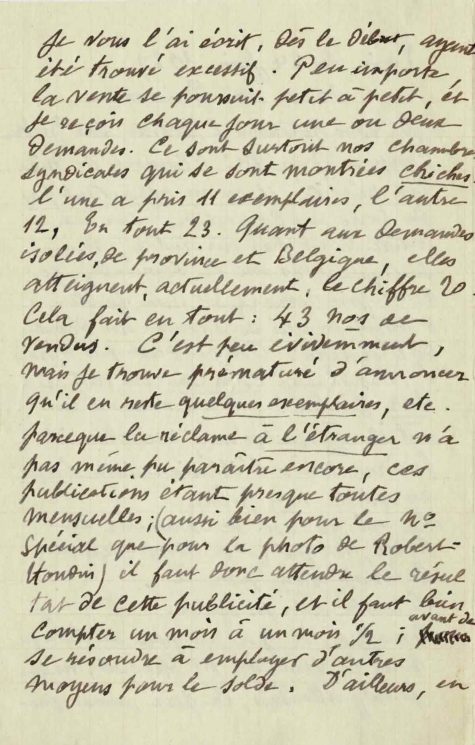 Je vous l'ai écrit, dès le début, ayant
été trouvé excessif. Peu importe,
la vente se poursuit petit à petit, et
je reçois chaque jour une ou deux
demandes. Ce sont surtout nos chambres
syndicales qui se sont montrées chiches.
l'une a pris 11 exemplaires, l'autre
12, En tout 23. Quant aux demandes
isolées, de province et Belgique, elles
atteignent, actuellement, le chiffre 20.
Cela fait en tout : 43 nos de
vendus. C'est peu évidemment,
mais je trouve prématuré d'annoncer
qu'il en reste quelques exemplaires, etc.
parceque la réclame à l'étranger n'a
pas même pu paraître encore, ces
publications étant presque toutes
mensuelles; (aussi bien pour le no
spécial que pour la photo de Robert-
Houdin) il faut donc attendre le résul
tat de cette publicité, et il faut bien
compter un mois à un mois 1/2 ; avant de
se résoudre à employer d'autres
moyens pour le solde. D'ailleurs, en